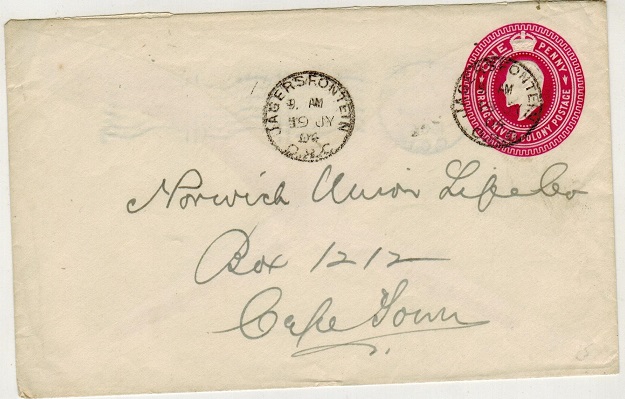 ONE PENNY
ORANGE RIVER COLONY POSTAGE
JAGERSFONTEIN
AM
O.R.C.
JAGERSFONTEIN
AM
Norwich Union Life Co
Box 1212
Cape Town